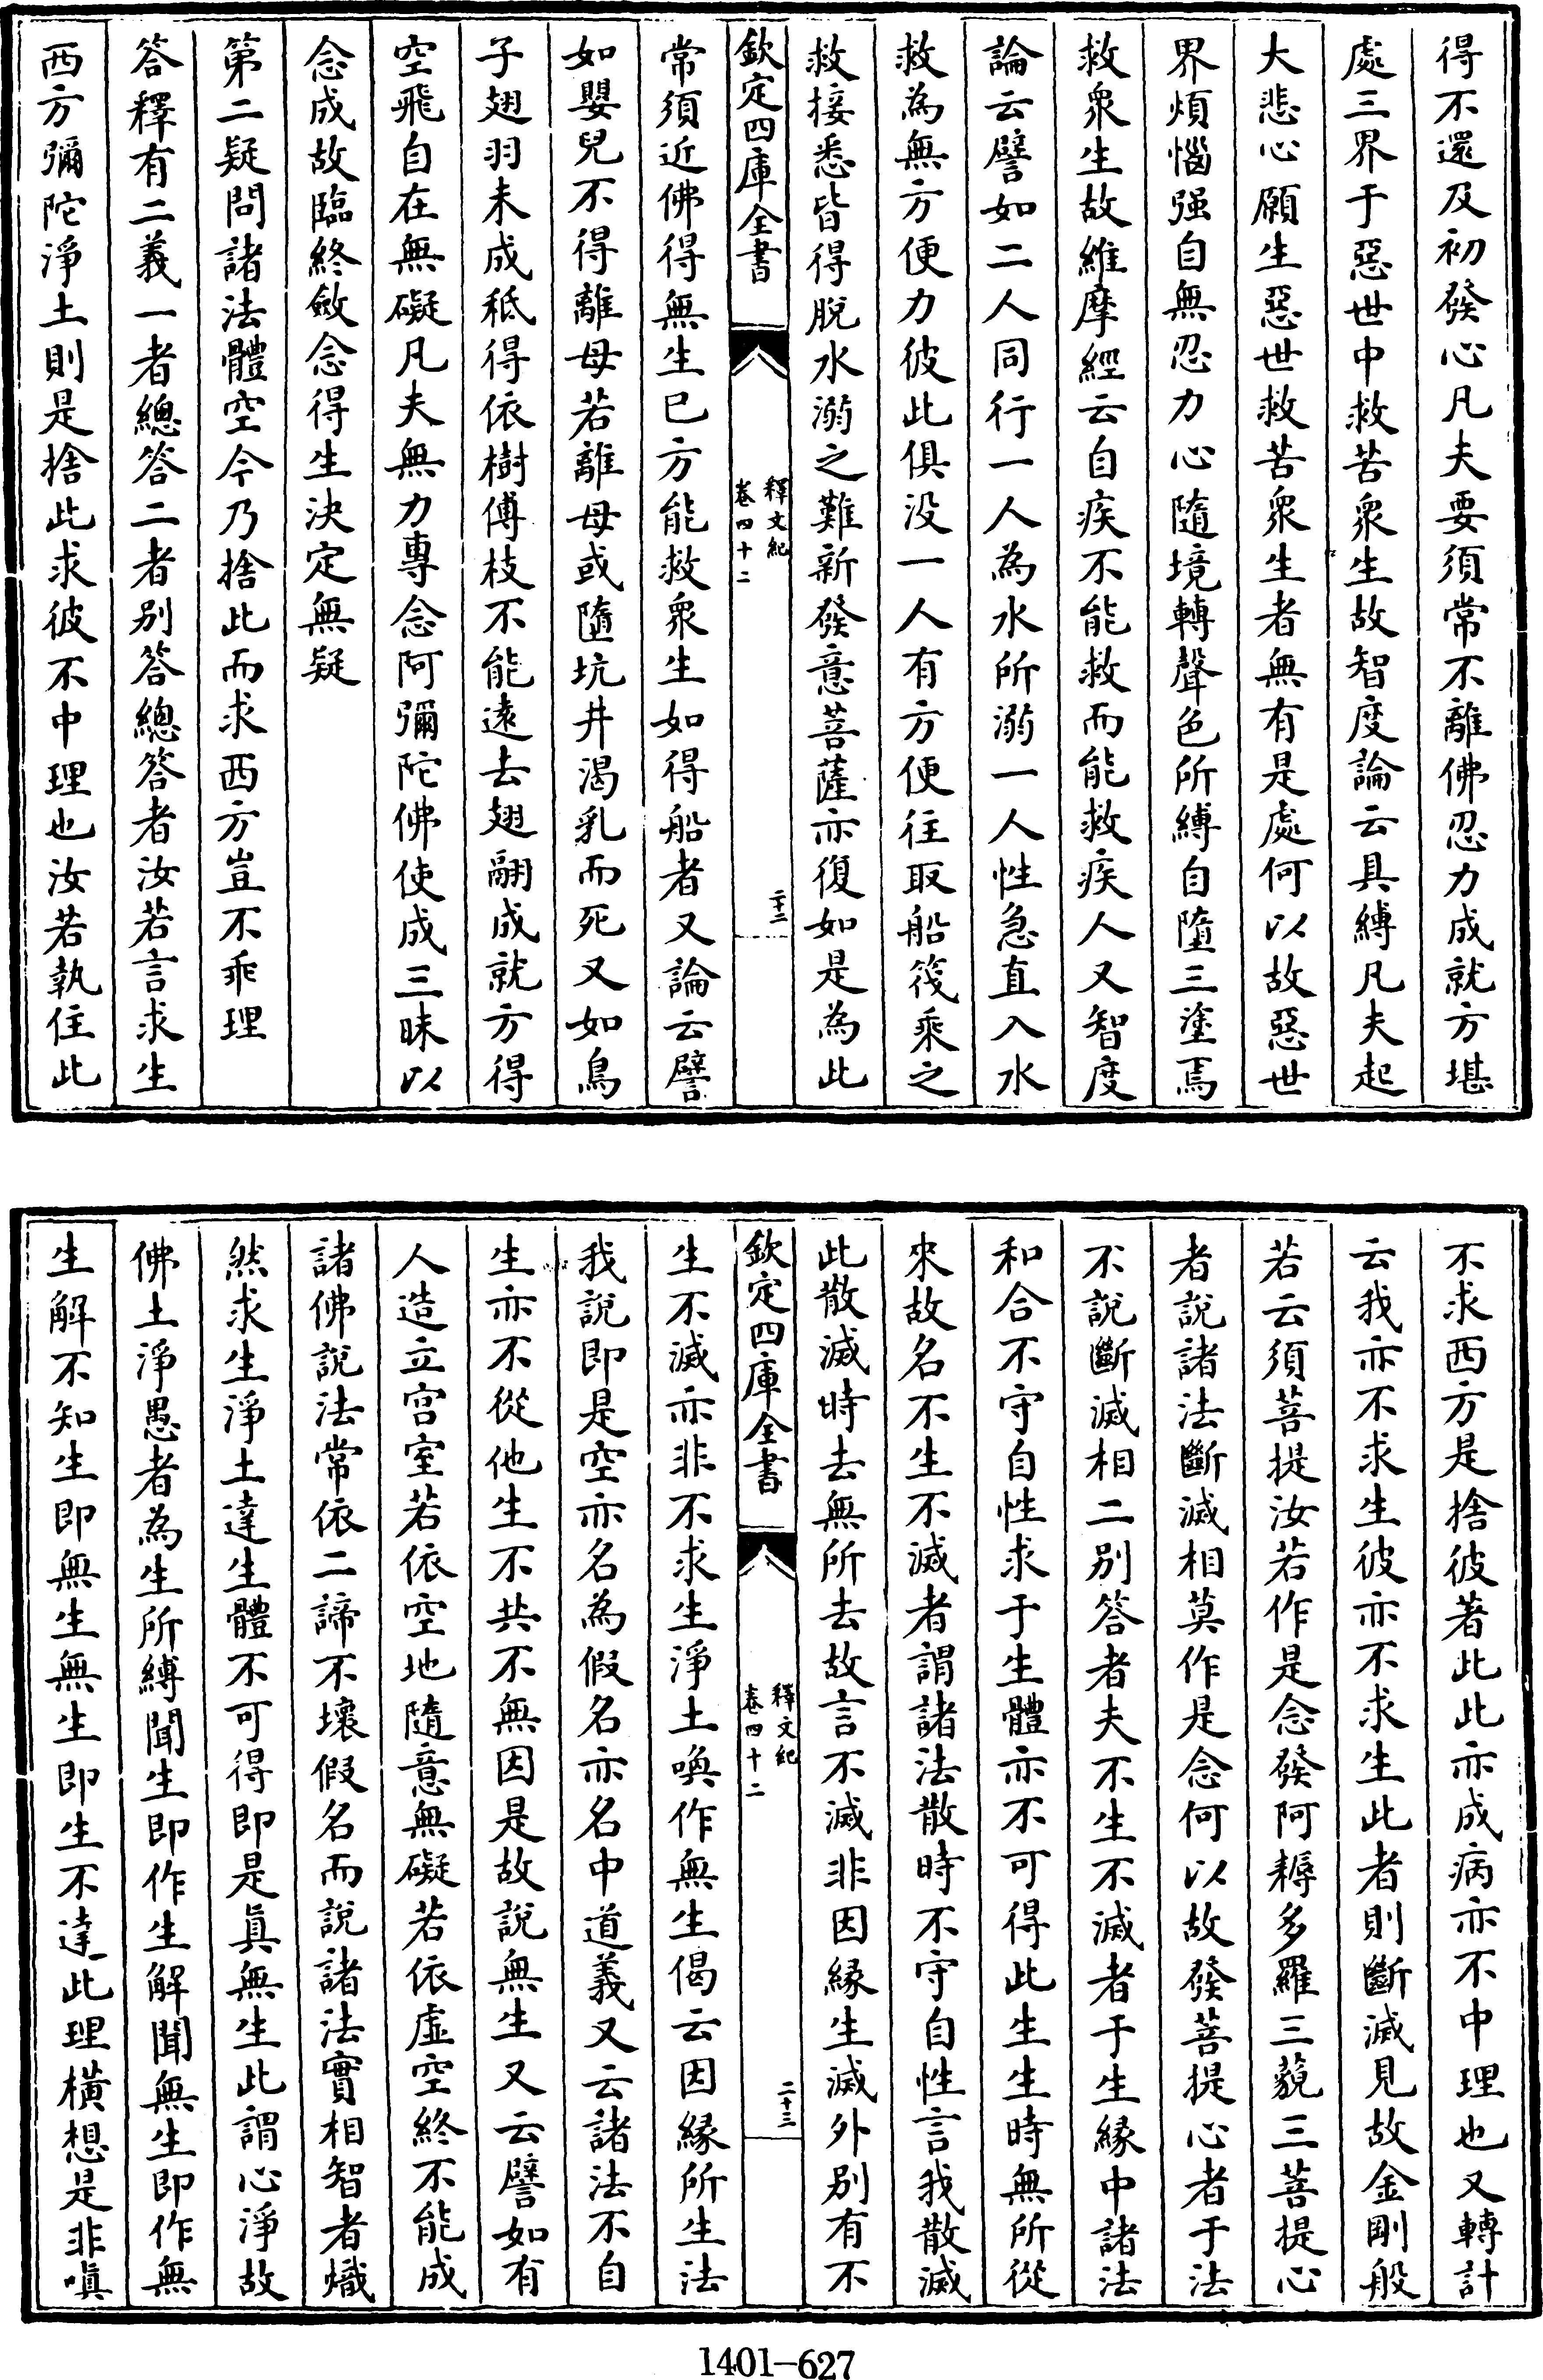 得不還及初發心凡夫要須常不離佛忍力成就方堪
處三界于惡世中救苦衆生故智度論云具縛凡夫起
大悲心願生惡世救苦衆生者無有是處何以故惡世
界煩惱强自無忍力心隨境轉聲色所縛自墮三塗焉
救衆生故維摩經云自疾不能救而能救疾人又智度
論云譬如二人同行一人為水所溺一人性急直入水
救為無方便力彼此俱没一人有方便往取船筏乘之
救接悉皆得脫水溺之難新發意菩薩亦復如是為此
欽定四庫全書
釋文紀
卷四十二
二十二
常須近佛得無生已方能救衆生如得船者又論云譬
如嬰兒不得離母若離母或墮坑井渴乳而死又如鳥
子翅羽未成秪得依樹傅枝不能遠去翅翮成就方得
空飛自在無礙凡夫無力專念阿彌陀佛使成三昧以
念成故臨終斂念得生決定無疑
第二疑問諸法體空今乃捨此而求西方豈不乖理
答釋有二義一者總答二者别答總答者汝若言求生
西方彌陀淨土則是捨此求彼不中理也汝若執住此
不求西方是捨彼著此此亦成病亦不中理也又轉計
云我亦不求生彼亦不求生此者則斷滅見故金剛般
若云須菩提汝若作是念發阿耨多羅三藐三菩提心
者說諸法斷滅相莫作是念何以故發菩提心者于法
不說斷滅相二别答者夫不生不滅者于生緣中諸法
和合不守自性求于生體亦不可得此生生時無所從
來故名不生不滅者謂諸法散時不守自性言我散滅
此散滅時去無所去故言不滅非因緣生滅外别有不
欽定四庫全書
釋文紀
卷四十二
二十三
生不滅亦非不求生淨土喚作無生偈云因緣所生法
我說即是空亦名為假名亦名中道義又云諸法不自
生亦不從他生不共不無因是故說無生又云譬如有
人造立宫室若依空地隨意無礙若依虛空終不能成
諸佛說法常依二諦不壞假名而說諸法實相智者熾
然求生淨土達生體不可得即是眞無生此謂心淨故
佛土淨愚者為生所縛聞生即作生解聞無生即作無
生解不知生即無生無生即生不達此理横想是非嗔
1401-627